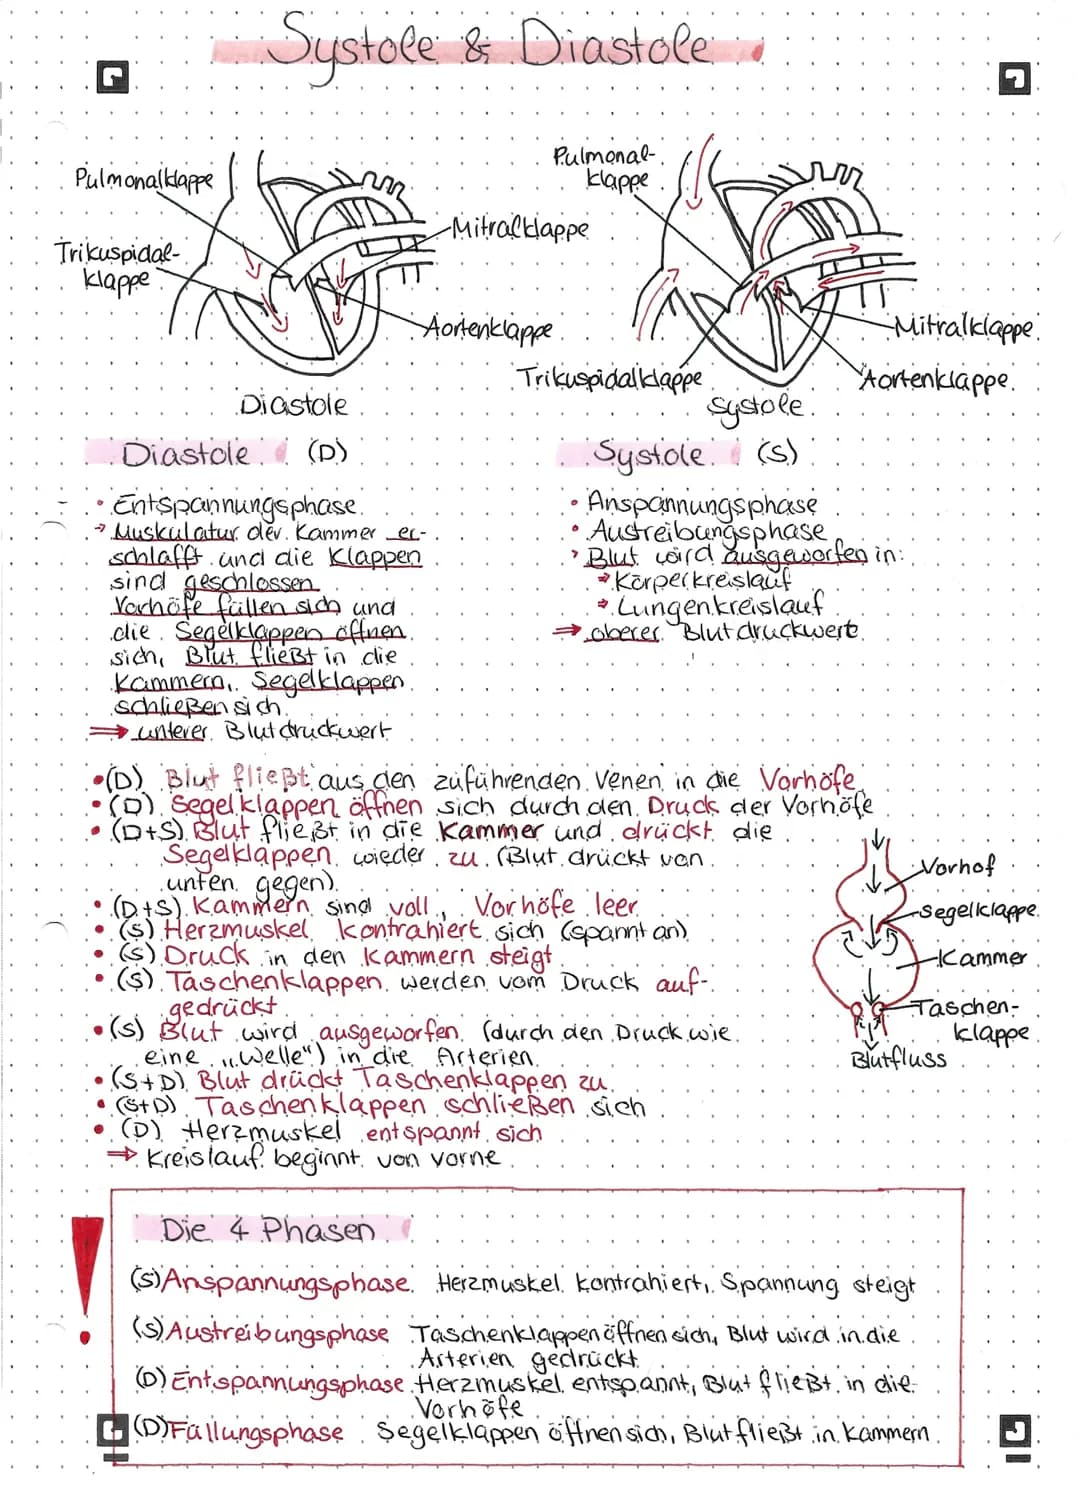 Systole & Diastole
Pulmonalklappe
Trikuspidal-
klappe
Mitralklappe
Aortenklappe
Diastole
Pulmonal-
klappe
Mitralklappe
Trikuspidalklappe
Aortenklappe
Systole
Diastole (D)
• Entspannungsphase
→ Muskulatur der Kammer er-
schlafft und die Klappen
sind geschlossen
Vorhöfe füllen sich und
die Segelklappen öffnen
sich, Blut fließt in die
Kammern, Segelklappen
schließen sich
⇒ unterer Blutdruckwert
Systole (S)
• Anspannungsphase
• Austreibungsphase
› Blut wird ausgeworfen in:
→ Körperkreislauf
→ Lungenkreislauf
⇒ oberer Blutdruckwert
• (D) Blut fließt aus den zuführenden Venen in die Vorhöfe
• (D) Segelklappen öffnen sich durch den Druck der Vorhöfe
• (D+S) Blut fließt in die Kammer und drückt die
Segelklappen wieder zu (Blut drückt von
unten gegen)
• (D+S) Kammern sind voll, Vorhöfe leer
• (S) Herzmuskel kontrahiert sich (spannt an)
• (S) Druck in den Kammern steigt
• (S) Taschenklappen werden vom Druck auf-
gedrückt
• (S) Blut wird ausgeworfen (durch den Druck wie
eine „Welle") in die Arterien
• (S+D) Blut drückt Taschenklappen zu
• (S+D) Taschenklappen schließen sich
• (D) Herzmuskel entspannt sich
⇒ Kreislauf beginnt von vorne
Vorhof
Segelklappe
Kammer
Taschen-
klappe
Blutfluss
Die 4 Phasen
(S) Anspannungsphase Herzmuskel kontrahiert, Spannung steigt
(S) Austreibungsphase Taschenklappen öffnen sich, Blut wird in die
Arterien gedrückt
(D) Entspannungsphase Herzmuskel entspannt, Blut fließt in die
Vorhöfe
(D) Füllungsphase Segelklappen öffnen sich, Blut fließt in Kammern